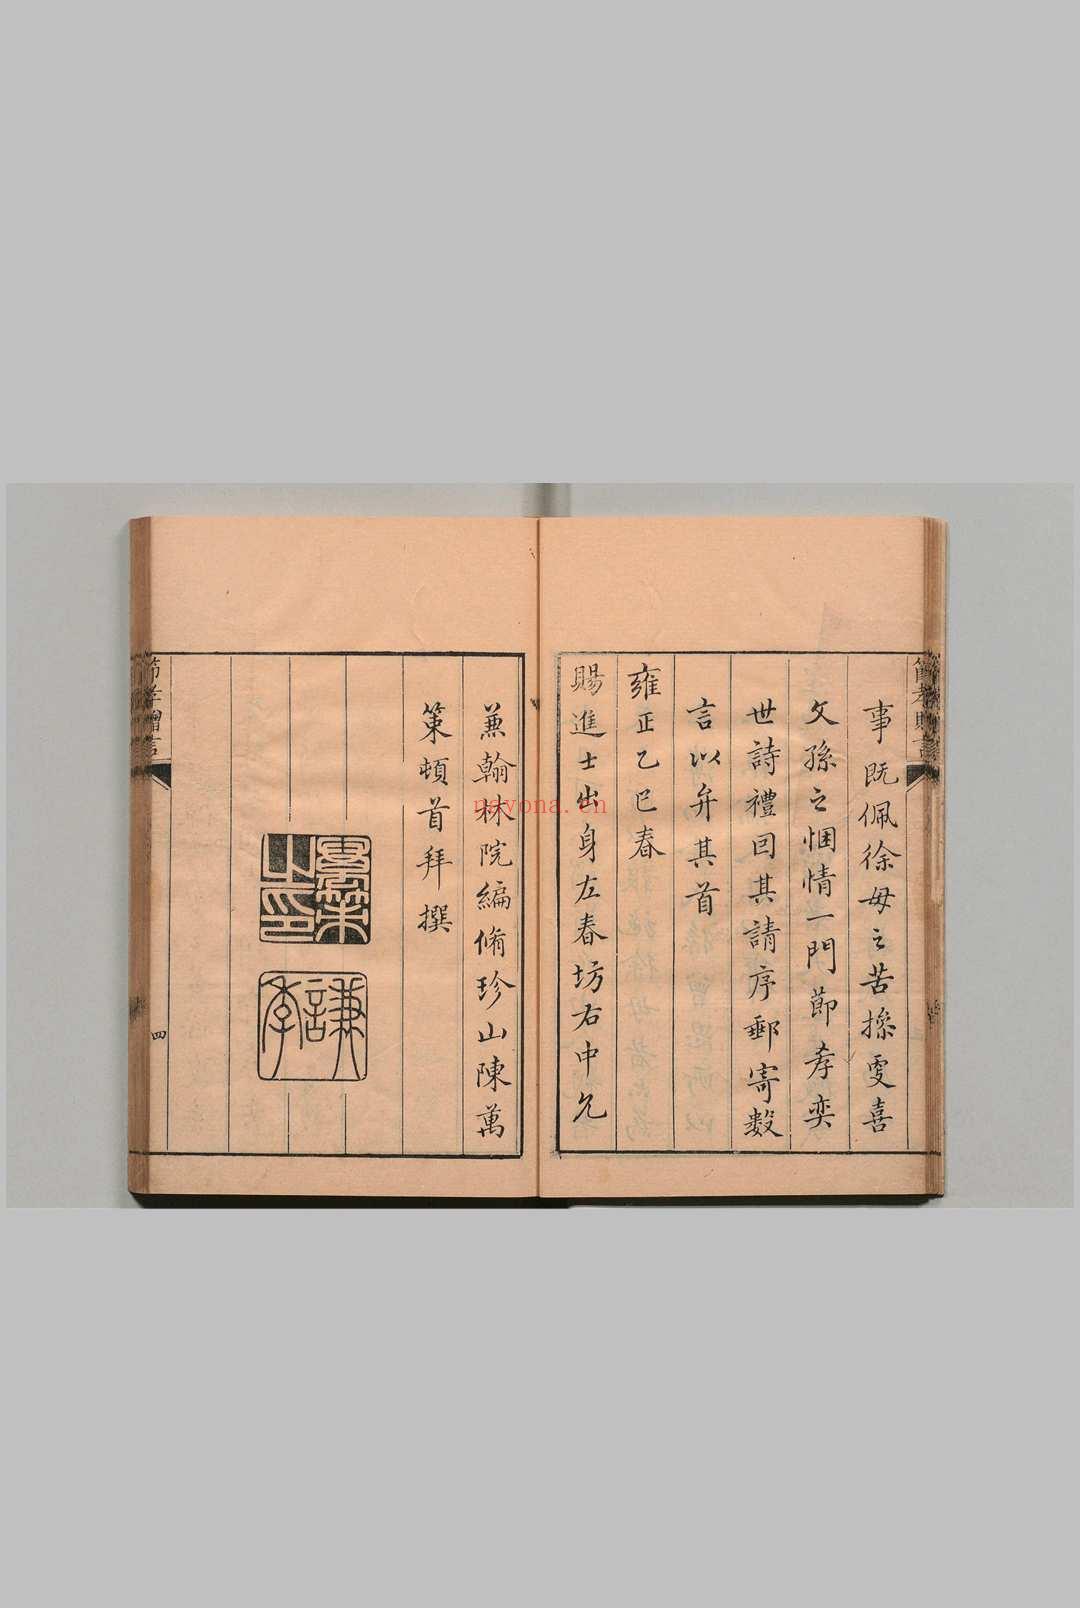 事既佩徐母之苦操雯喜
文孫之悃情一門節孝奕
世詩禮回其請序郵寄數
言以弁其首
雍正乙巳春
賜進士出身左春坊右中允
兼翰林院編脩珍山陳萬
策頓首拜撰
萬策之印
謙季
節孝贈言
四
nayona.cn